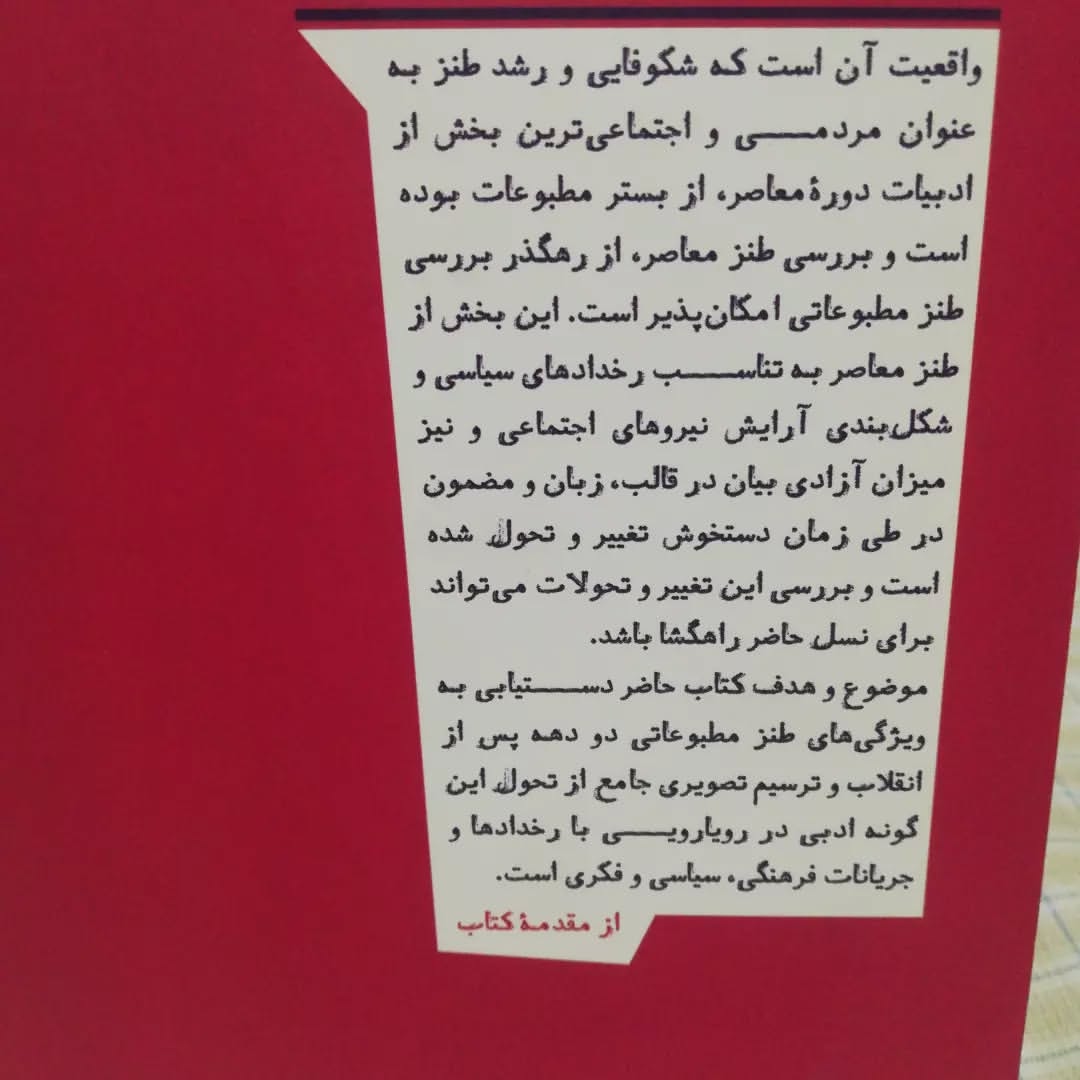 واقعیت آن است که شکوفایی و رشد طنز به
عنوان مردمی و اجتماعی‌ترین بخش از
ادبیات دورهٔ معاصر، از بستر مطبوعات بوده
است و بررسی طنز معاصر، از رهگذر بررسی
طنز مطبوعاتی امکان‌پذیر است. این بخش از
طنز معاصر به تناسب رخدادهای سیاسی و
شکل‌بندی آرایش نیروهای اجتماعی و نیز
میزان آزادی بیان در قالب، زبان و مضمون
در طی زمان دستخوش تغییر و تحول شده
است و بررسی این تغییر و تحولات می‌تواند
برای نسل حاضر راهگشا باشد.
موضوع و هدف کتاب حاضر دستیابی به
ویژگی‌های طنز مطبوعاتی دو دهه پس از
انقلاب و ترسیم تصویری جامع از تحول این
گونه ادبی در رویارویی با رخدادها و
جریانات فرهنگی، سیاسی و فکری است.
از مقدمهٔ کتاب